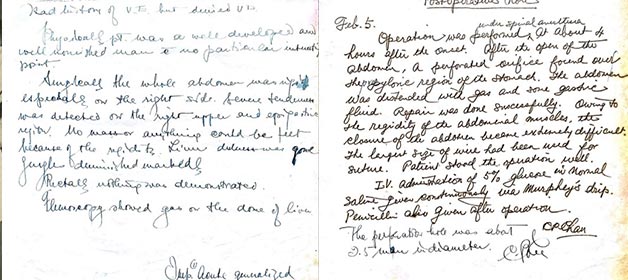 had history of V.D. but denied V.D.
Physically pt. was a well developed and
well nourished man to no particular interesting
point
Surgically the whole abdomen was rigid
especially on the right side. Severe tenderness
was detected on the right upper and epigastric
region. No mass or anything could be felt
because of the rigidity. Liver dulness was
diminished markedly
Rectally nothing was demonstrated.
Fluoroscopy showed gas on the dome of liver
Acute generalized
Post-operative note
Feb. 5.
under spinal anesthesia
Operation was performed, At about 4
hours after the onset. After the open of the
abdomen, a perforated orifice found over
the pyloric region of the stomach. The abdomen
was distended with gas and some gastric
fluid. Repair was done sucessfully. Owing to
the regidity of the abdominal muscles, the
closure of the abdomen became extremely difficult.
The largest size of wire had been used for
suture. Patient stood the operation well.
I.V. administration of 5% glucose in normal
saline given continuously via Murphey's drip.
Penicillin also given after operation.
CP Chan
The perforation hole was about
2.5 mm in diameter.